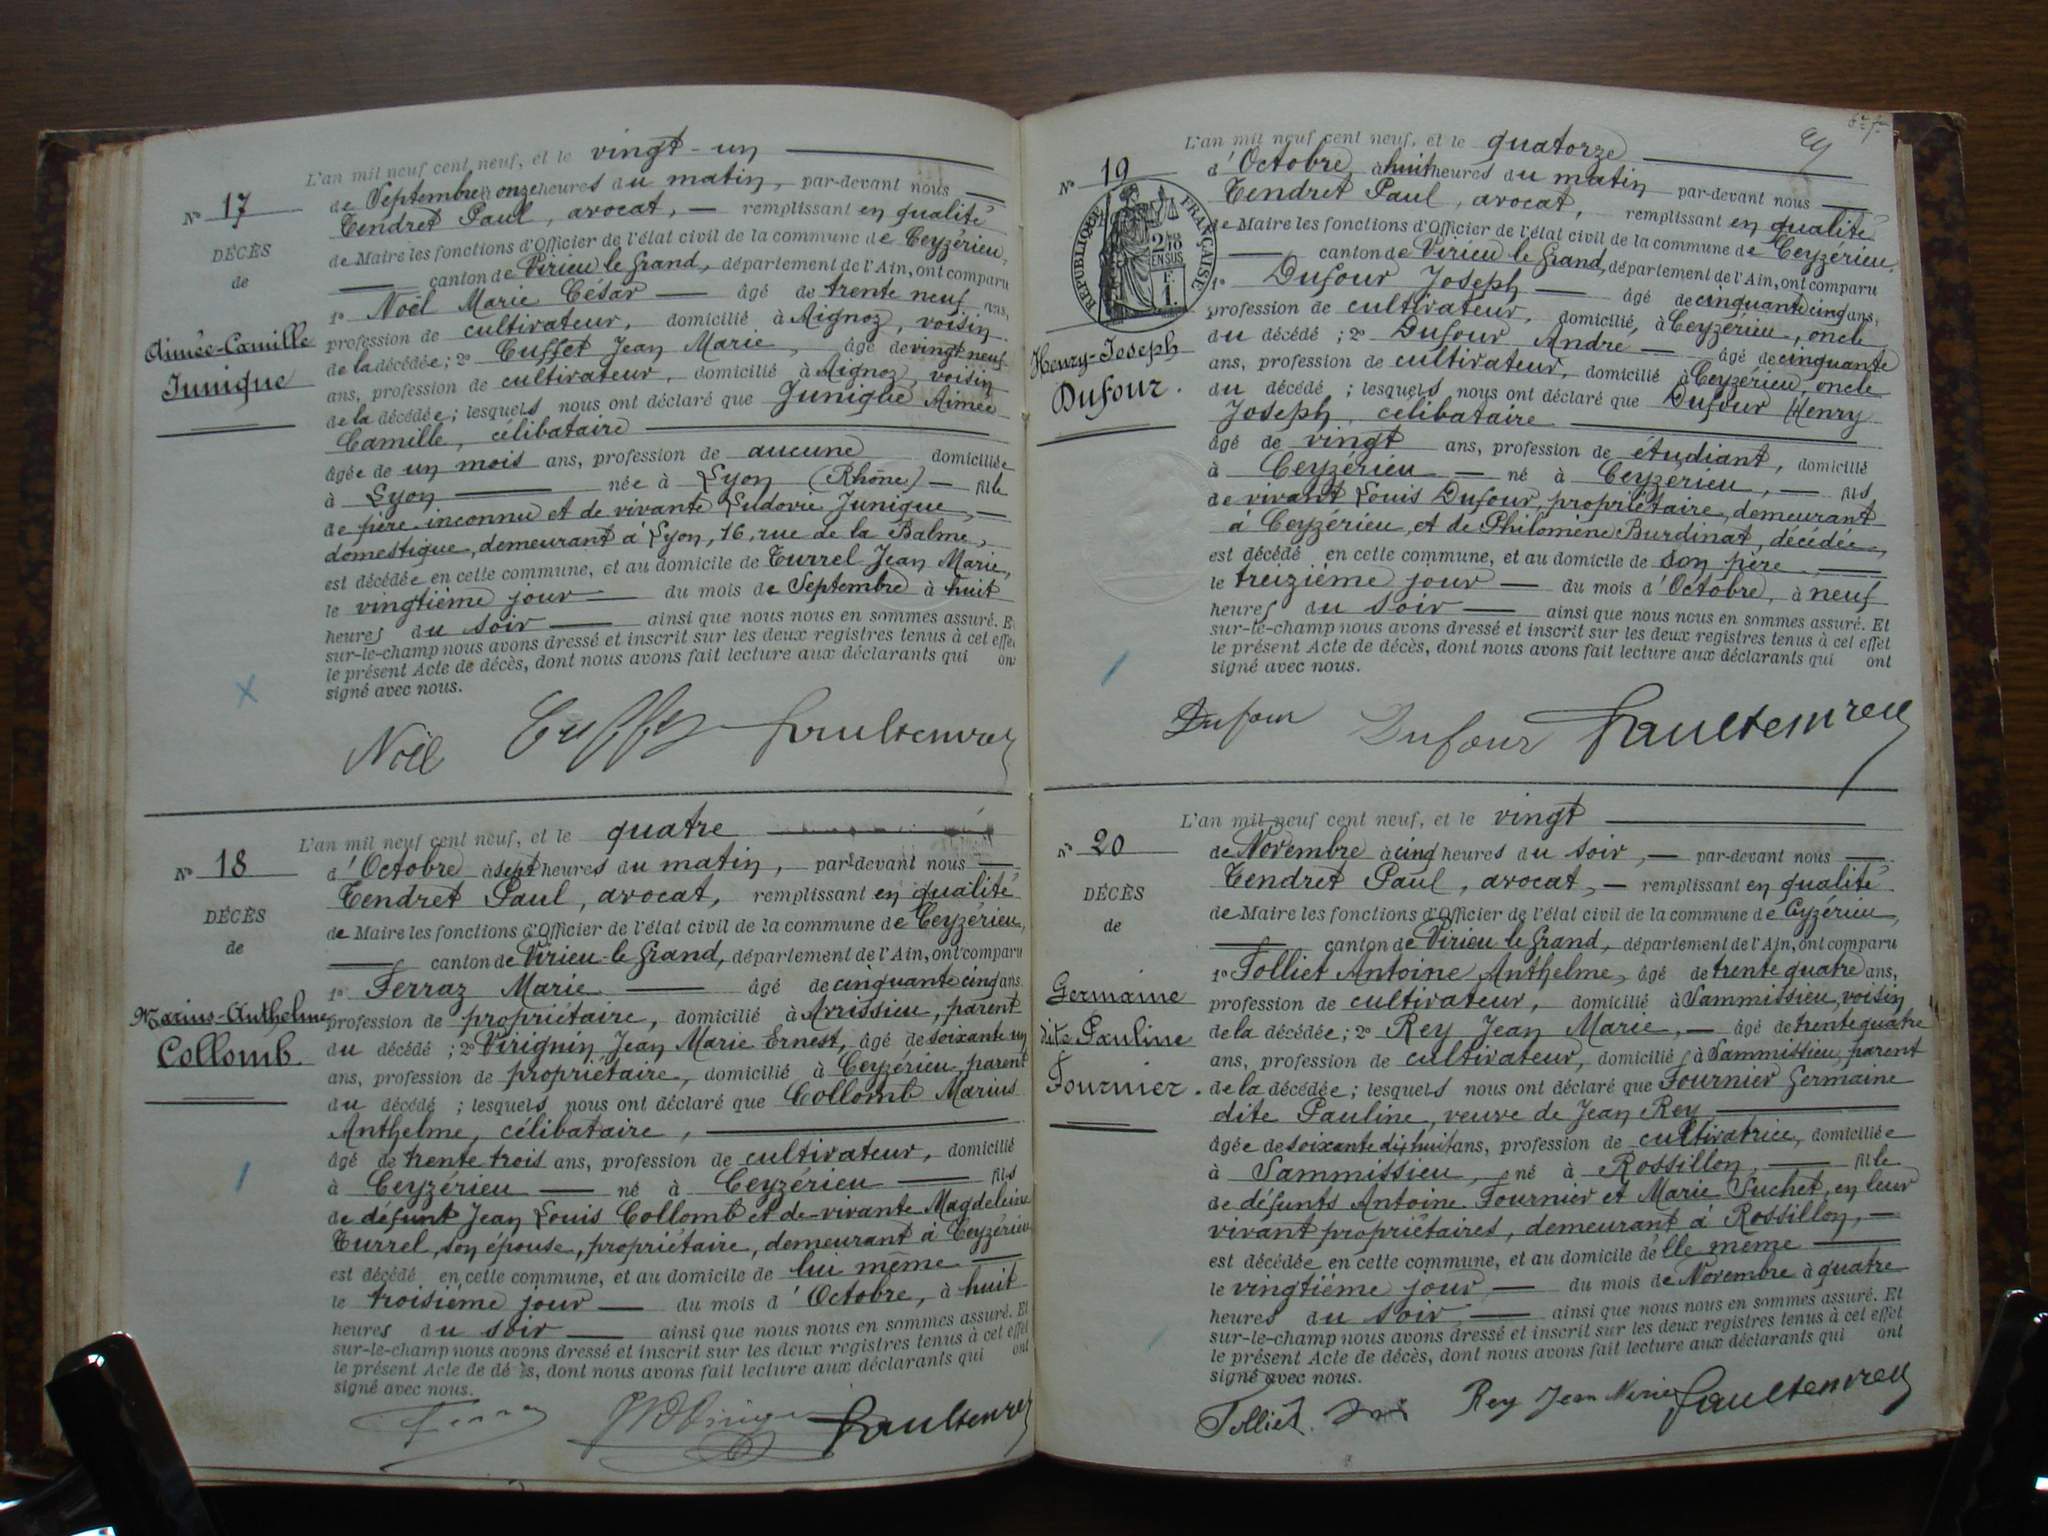 L'an mil neuf cent neuf, et le vingt-un
de Septembre à onze heures du matin, par-devant nous
Tendret Paul, avocat, remplissant en qualité
de Maire les fonctions d'Officier de l'état civil de la commune de Ceyzérieu,
canton de Virieu le Grand, département de l'Ain, ont comparu
1º Noël Marie César âgé de trente neuf ans,
profession de cultivateur, domicilié à Aignoz, voisin
de la décédée; 2º Cusset Jean Marie, âgé de vingt neuf
ans, profession de cultivateur, domicilié à Aignoz, voisin
de la décédée; lesquels nous ont déclaré que Junique Aimée
Camille, célibataire
âgée de un mois ans, profession de aucune domiciliée
à Lyon née à Lyon (Rhône) fille
de père inconnu et de vivante Ludovie Junique,
domestique, demeurant à Lyon, 16, rue de la Balme,
est décédée en cette commune, et au domicile de Turrel Jean Marie,
le vingtième jour du mois de Septembre à huit
heures du soir ainsi que nous nous en sommes assuré. Et
sur-le-champ nous avons dressé et inscrit sur les deux registres tenus à cet effet
le présent Acte de décès, dont nous avons fait lecture aux déclarants qui ont
signé avec nous.
Nº 17
DÉCÈS
de
Aimée-Camille
Junique
Noël
L'an mil neuf cent neuf, et le quatre
d'Octobre à sept heures du matin, par-devant nous
Tendret Paul, avocat, remplissant en qualité
de Maire les fonctions d'Officier de l'état civil de la commune de Ceyzérieu,
canton de Virieu-le-Grand, département de l'Ain, ont comparu
1º Ferraz Marie âgé de cinquante cinq ans
profession de propriétaire, domicilié à Arrissieu, parent
du décédé; 2º Virignin Jean Marie Ernest, âgé de soixante un
ans, profession de propriétaire, domicilié à Ceyzérieu, parent
du décédé; lesquels nous ont déclaré que Collomb Marius
Anthelme, célibataire,
âgé de trente trois ans, profession de cultivateur, domicilié
à Ceyzérieu né à Ceyzérieu fils
de défunt Jean Louis Collomb et de vivante Magdeleine
Turrel, son épouse, propriétaire, demeurant à Ceyzérieu
est décédé en cette commune, et au domicile de lui même
le troisième jour du mois d'Octobre, à huit
heures du soir ainsi que nous nous en sommes assuré. Et
sur-le-champ nous avons dressé et inscrit sur les deux registres tenus à cet effet
le présent Acte de décès, dont nous avons fait lecture aux déclarants qui ont
signé avec nous.
Nº 18
DÉCÈS
de
Marius-Anthelme
Collomb.
L'an mil neuf cent neuf, et le quatorze
d'Octobre à huit heures du matin par-devant nous
Tendret Paul, avocat, remplissant en qualité
de Maire les fonctions d'Officier de l'état civil de la commune de Ceyzérieu,
canton de Virieu le Grand, département de l'Ain, ont comparu
1º Dufour Joseph âgé de cinquante cinq ans,
profession de cultivateur, domicilié à Ceyzérieu, oncle
du décédé; 2º Dufour André âgé de cinquante
ans, profession de cultivateur, domicilié à Ceyzérieu oncle
du décédé; lesquels nous ont déclaré que Dufour Henry
Joseph, célibataire
âgé de vingt ans, profession de étudiant, domicilié
à Ceyzérieu né à Ceyzérieu, fils
de vivant Louis Dufour, propriétaire, demeurant
à Ceyzérieu, et de Philomène Burdinat, décédée,
est décédé en cette commune, et au domicile de son père,
le treizième jour du mois d'Octobre, à neuf
heures du soir ainsi que nous nous en sommes assuré. Et
sur-le-champ nous avons dressé et inscrit sur les deux registres tenus à cet effet
le présent Acte de décès, dont nous avons fait lecture aux déclarants qui ont
signé avec nous.
Nº 19
RÉPUBLIQUE FRANÇAISE
2/10
EN SUS
F.
1.
Henry-Joseph
Dufour.
Dufour Dufour
L'an mil neuf cent neuf, et le vingt
de Novembre à cinq heures du soir, par-devant nous
Tendret Paul, avocat, remplissant en qualité
de Maire les fonctions d'Officier de l'état civil de la commune de Ceyzérieu,
canton de Virieu le Grand, département de l'Ain, ont comparu
1º Folliet Antoine Anthelme, âgé de trente quatre ans,
profession de cultivateur, domicilié à Sammissieu, voisin
de la décédée; 2º Rey Jean Marie, âgé de trente quatre
ans, profession de cultivateur, domicilié à Sammissieu, parent
de la décédée; lesquels nous ont déclaré que Fournier Germaine
dite Pauline, veuve de Jean Rey
âgée de soixante dix huit ans, profession de cultivatrice, domiciliée
à Sammissieu, né à Rossillon, fille
de défunts Antoine Fournier et Marie Suchet, en leur
vivant propriétaires, demeurant à Rossillon,
est décédée en cette commune, et au domicile d'elle même
le vingtième jour du mois de Novembre à quatre
heures du soir, ainsi que nous nous en sommes assuré. Et
sur-le-champ nous avons dressé et inscrit sur les deux registres tenus à cet effet
le présent Acte de décès, dont nous avons fait lecture aux déclarants qui ont
signé avec nous.
Nº 20
DÉCÈS
de
Germaine
dite Pauline
Fournier.
Folliet Rey Jean Marie